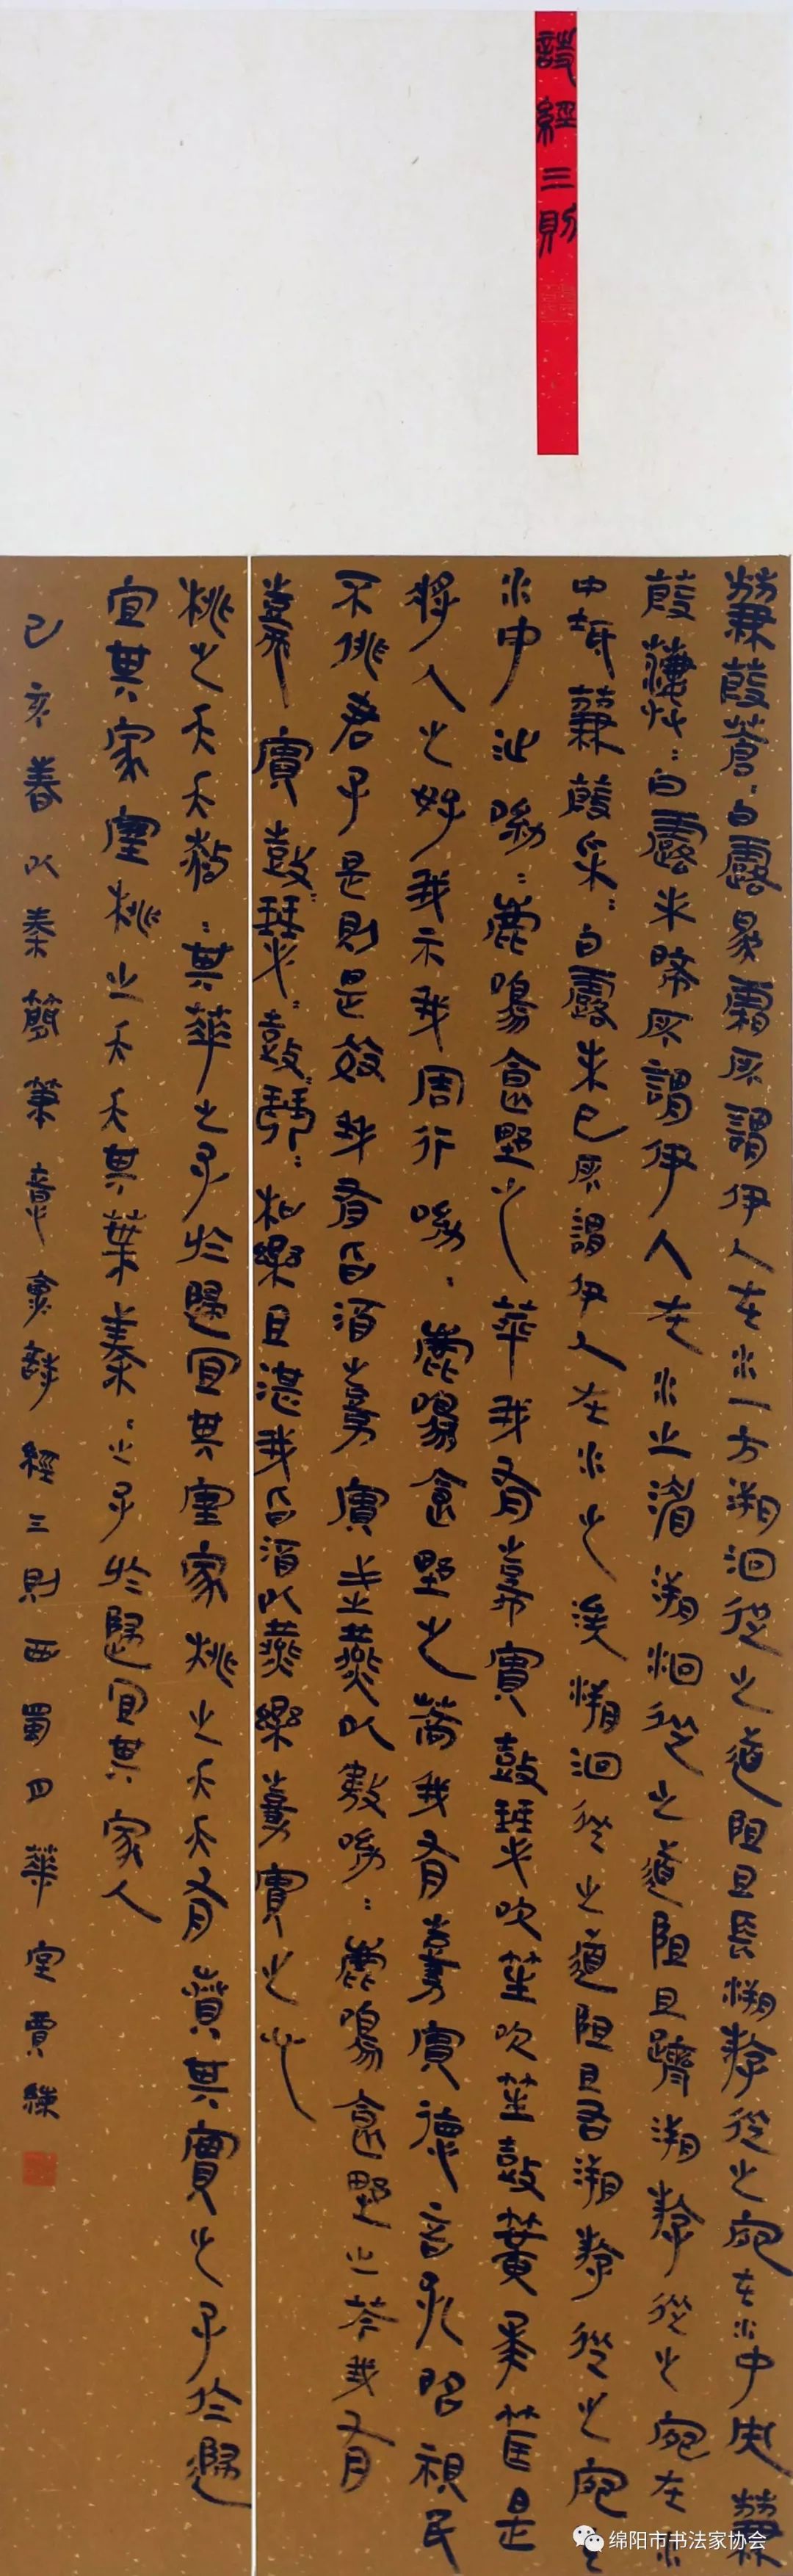 詩經三則
蒹葭蒼=白露為霜所謂伊人在水一方溯洄從之道阻且長溯游從之宛在水中央蒹
葭萋=白露未晞所謂伊人在水之湄溯洄從之道阻且躋溯游從之宛在水
中坻蒹葭采=白露未已所謂伊人在水之涘溯洄從之道阻且右溯游從之宛在
水中沚呦=鹿鳴食野之苹我有嘉賓鼓瑟吹笙吹笙鼓簧承筐是
將人之好我示我周行呦=鹿鳴食野之蒿我有嘉賓德音孔昭視民
不恌君子是則是效我有旨酒嘉賓式燕以敖呦=鹿鳴食野之芩我有
嘉賓鼓=瑟=鼓=琴=和樂且湛我有旨酒以燕樂嘉賓之心
桃之夭夭灼=其華之子于歸宜其室家桃之夭夭有蕡其實之子于歸
宜其家室桃之夭夭其葉蓁=之子于歸宜其家人
己亥春以秦簡筆意寫詩經三則西蜀四華堂賈
绵阳市书法家协会